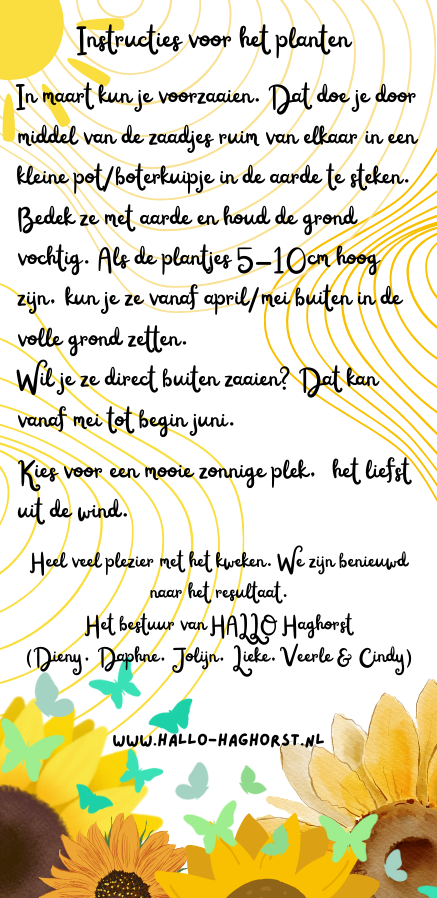 Instructies voor het planten
In maart kun je voorzaaien. Dat doe je door
middel van de zaadjes ruim van elkaar in een
kleine pot/boterkuipje in de aarde te steken.
Bedek ze met aarde en houd de grond
vochtig. Als de plantjes 5-10cm hoog
zijn. kun je ze vanaf april/mei buiten in de
volle grond zetten.
Wil je ze direct buiten zaaien? Dat kan
vanaf mei tot begin juni.
Kies voor een mooie zonnige plek. het liefst
uit de wind.
Heel veel plezier met het kweken. We zijn benieuwd
naar het resultaat.
Het bestuur van HALLO Haghorst
(Dieny. Daphne. Jolijn. Lieke. Veerle & Cindy)
WWW.HALLO-HAGHORST.NL